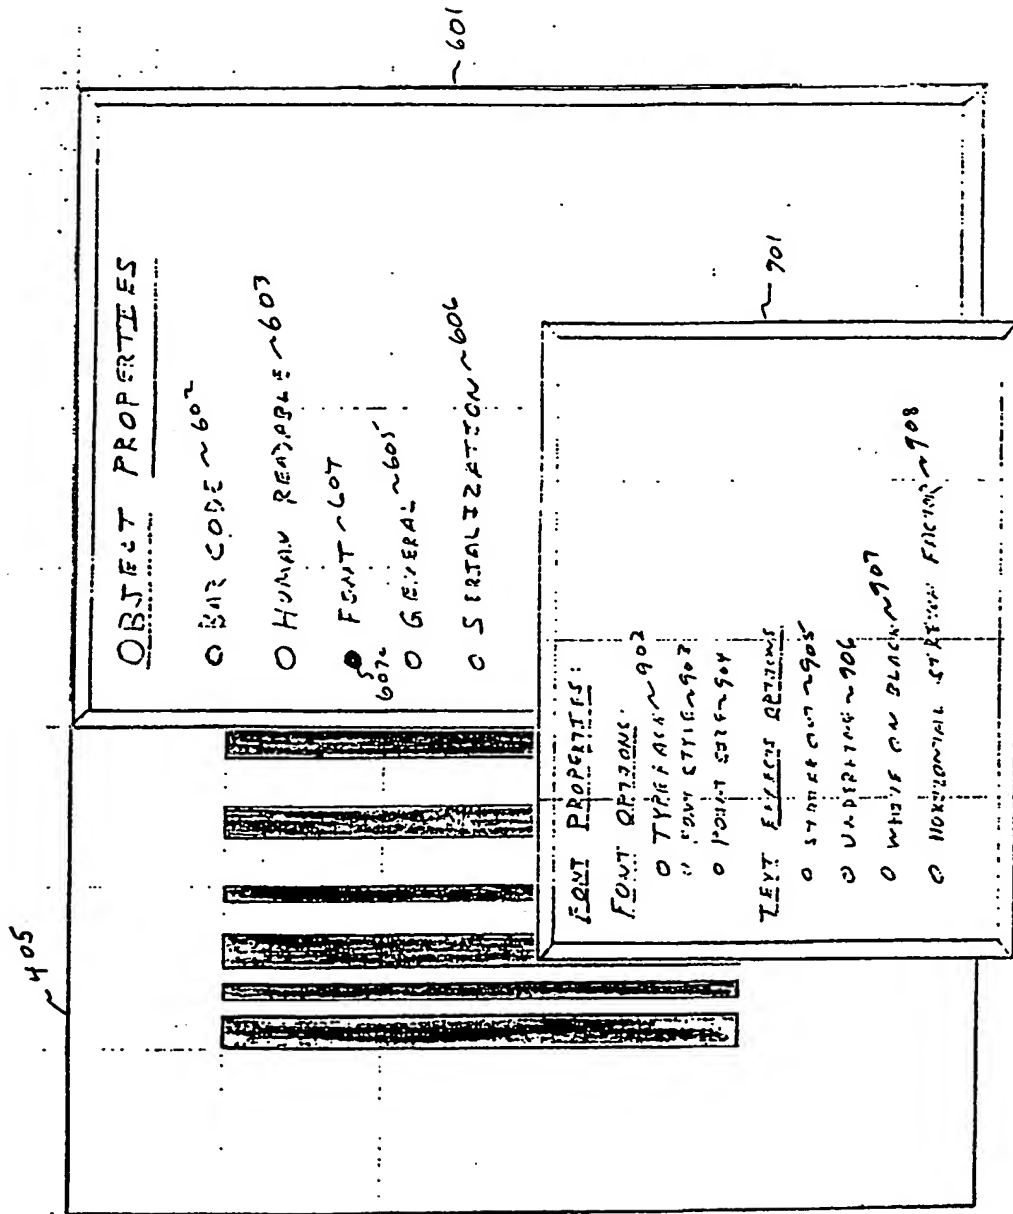 ~405
~601
OBJECT PROPERTIES
O BAR CODE ~602
O HUMAN READABLE ~603
FONT ~607
607a
O GENERAL ~605
O SERIALIZATION ~606
~901
FONT PROPERTIES:
FONT OPTIONS:
O TYPEFACE ~902
O FONT STYLE ~903
O POINT SIZE ~904
TEXT EFFECTS OPTIONS
O STRIKE OUT ~905
O UNDERLINE ~906
O WHITE ON BLACK ~907
O HORIZONTAL STRETCH FACTOR ~908